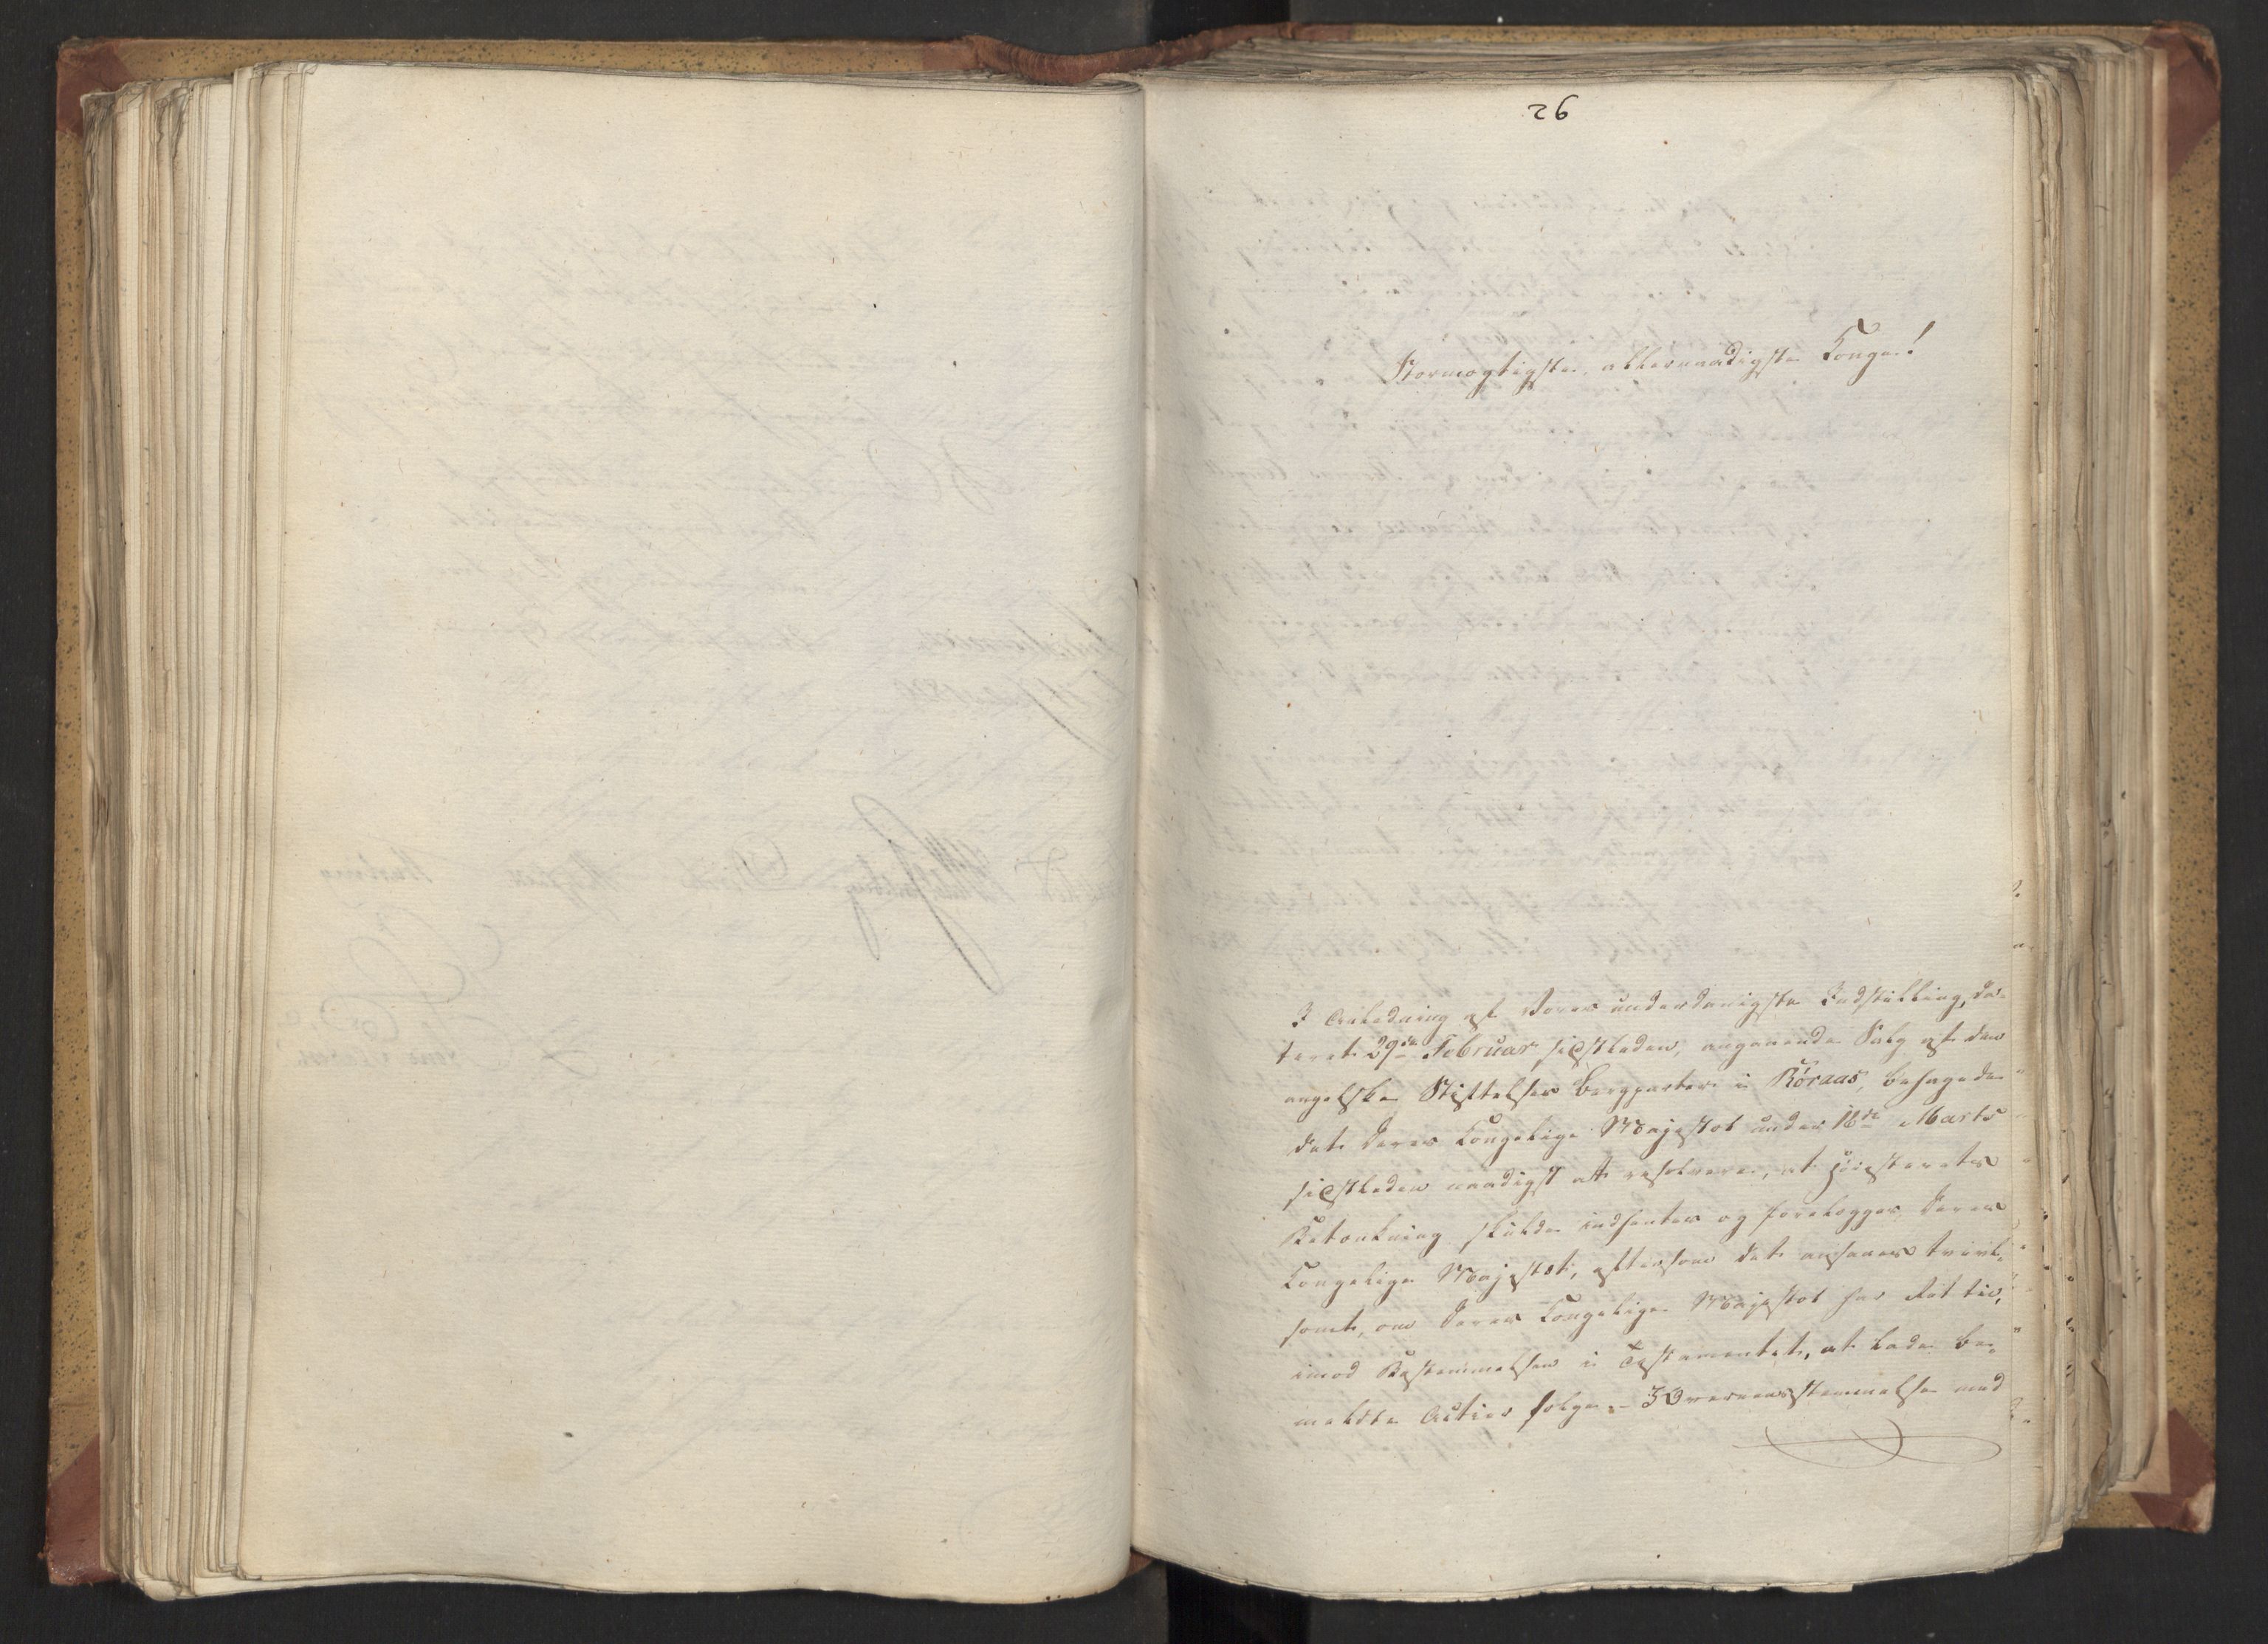 26
Stormægtigste, allernaadigste Konge!
I Anledning af Vores underdanigste Indstilling, da-
teret 29de Februar sidstleden, angaaende Salg af den
angelske Stiftelses Bergparter i Röraas, behagede
det Deres Kongelige Majestæt under 16de Marts
sidstleden naadigst at resolvere, at Höiesterets
Betænkning skulde indhentes og forelægges Deres
Kongelige Majestæt, eftersom det ansaaes tvivl-
somt, om Deres Kongelige Majestæt har Ret til,
imod Bestemmelsen i Testamentet, at lade be-
meldte Actier sælge. - I Overeensstemmelse med